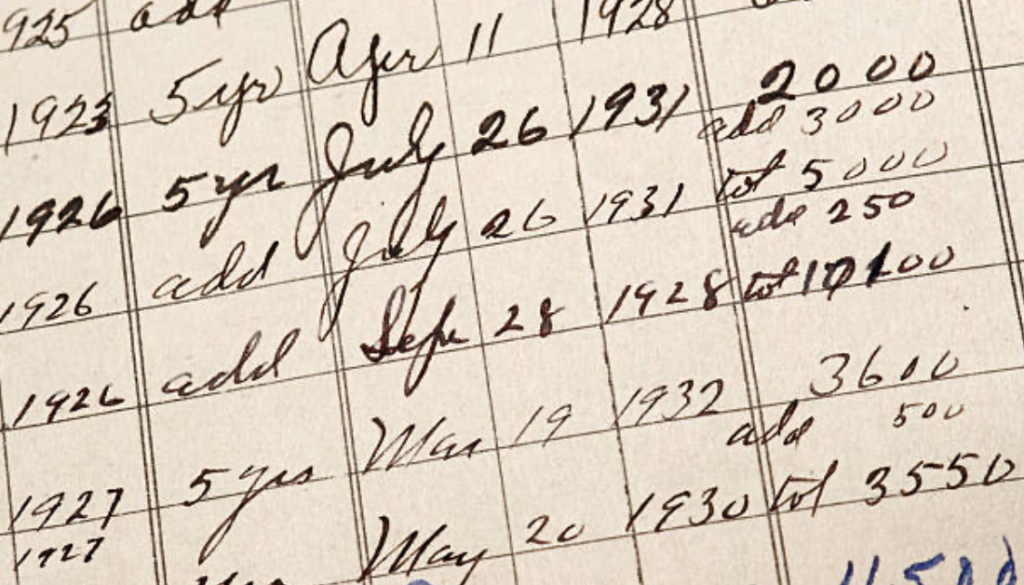 925 add
1923 5yr Apr 11 1928 2000
1926 5yr July 26 1931 add 3000
1926 add July 26 1931 tot 5000
add 250
1926 add Sept 28 1928 tot
1927 5yrs Mar 19 1932 3600
add 500
1927 May 20 1930 tot 3550